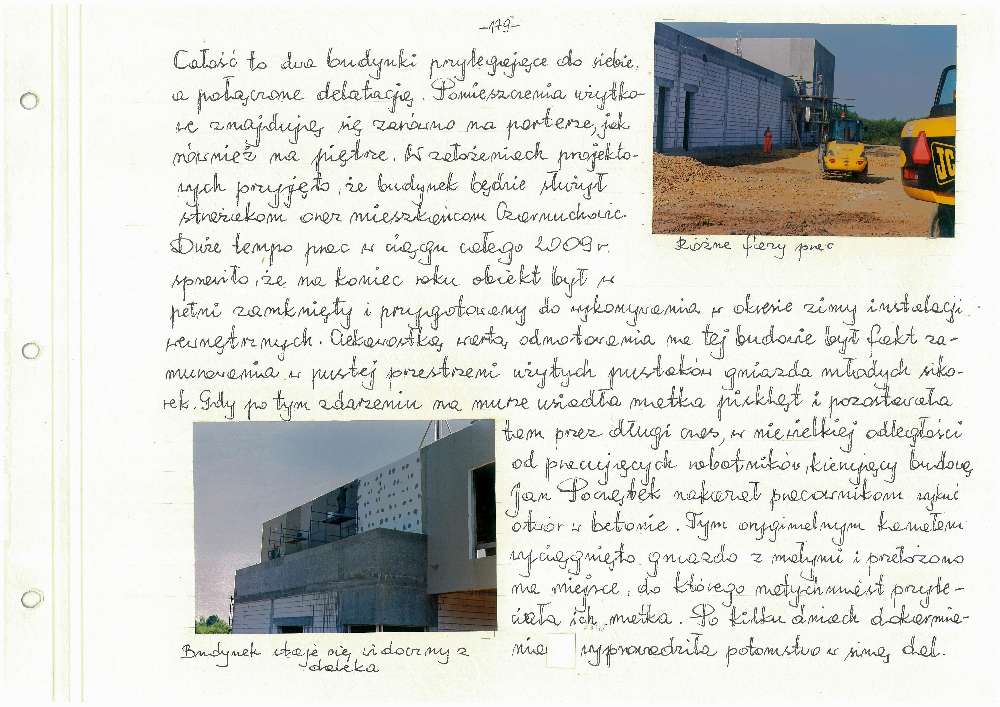 -179-
Całość to dwa budynki przylegające do siebie,
a połączone delatacją. Pomieszczenia użytko-
we znajdują się zarówno na parterze, jak
również na piętrze. W założeniach projekto-
wych przyjęto, że budynek będzie służył
strażakom oraz mieszkańcom Czernichowic.
Duże tempo prac w ciągu całego 2009 r.
sprawiło, że na koniec roku obiekt był w
pełni zamknięty i przygotowany do wykonywania w okresie zimy instalacji
wewnętrznych. Ciekawostką wartą odnotowania na tej budowie był fakt za-
murowania w pustej przestrzeni użytych pustaków gniazda młodych siko-
rek. Gdy po tym zdarzeniu na murze usiadła matka piskląt i pozostawała
tam przez długi czas, w niewielkiej odległości
od pracujących robotników, kierujący budową
Jan Początek nakazał pracownikom wykuć
otwór w betonie. Tym oryginalnym kanałem
wyciągnięto gniazdo z małymi i przełożono
na miejsce, do którego natychmiast przyle-
ciała ich matka. Po kilku dniach dokarmia-
nia wyprowadziła potomstwo w siną dal.
Różne fazy prac
JC
Budynek staje się widoczny z
daleka